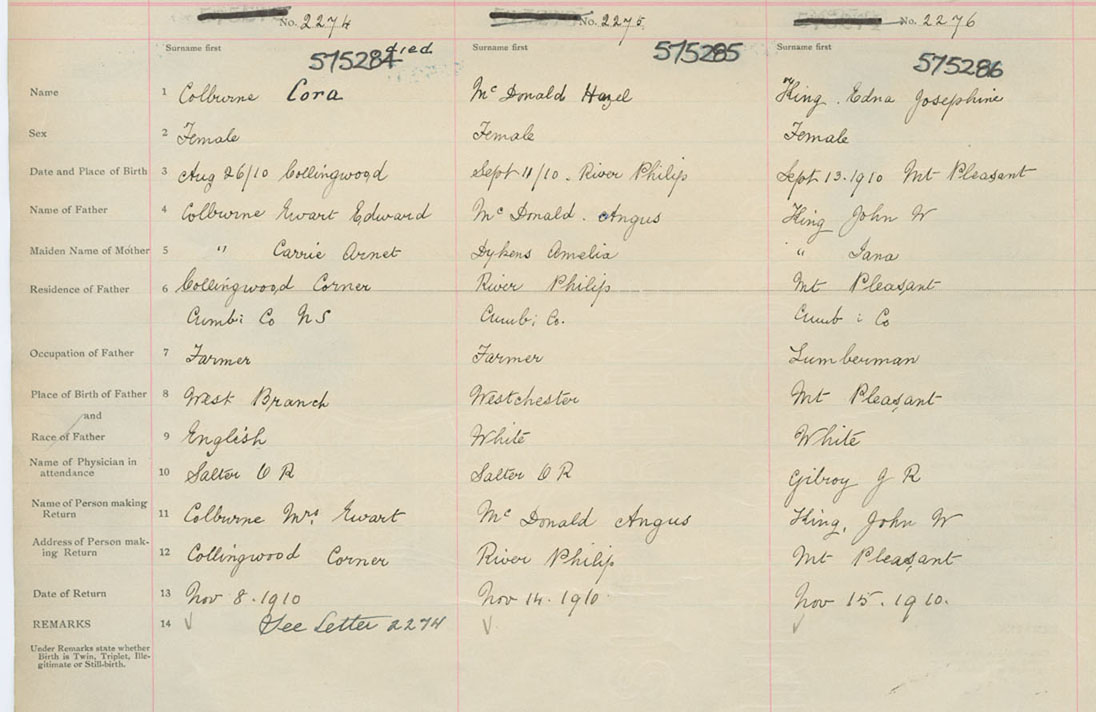 No. 2274 No. 2275 No. 2276
Surname first Surname first Surname first
575284 died 575285 575286
Name 1 Colburne Cora McDonald Hazel King. Edna Josephine
Sex 2 Female Female Female
Date and Place of Birth 3 Aug 26/10 Collingwood Sept 11/10. River Philip Sept 13. 1910 Mt Pleasant
Name of Father 4 Colburne Ewart Edward McDonald. Angus King John W
Maiden Name of Mother 5 " Carrie Arnet Dykens Amelia " Jana
Residence of Father 6 Collingwood Corner River Philip Mt Pleasant
Cumb: Co N S Cumb: Co. Cumb: Co
Occupation of Father 7 Farmer Farmer Lumberman
Place of Birth of Father 8 West Branch Westchester Mt Pleasant
and
Race of Father 9 English White White
Name of Physician in
attendance 10 Salter O R Salter O R Gilroy J R
Name of Person making
Return 11 Colburne Mrs. Ewart McDonald Angus King, John W
Address of Person mak-
ing Return 12 Collingwood Corner River Philip Mt Pleasant
Date of Return 13 Nov 8. 1910 Nov 14. 1910 Nov 15. 1910.
REMARKS 14 See Letter 2274
Under Remarks state whether
Birth is Twin, Triplet, Ille-
gitimate or Still-birth.